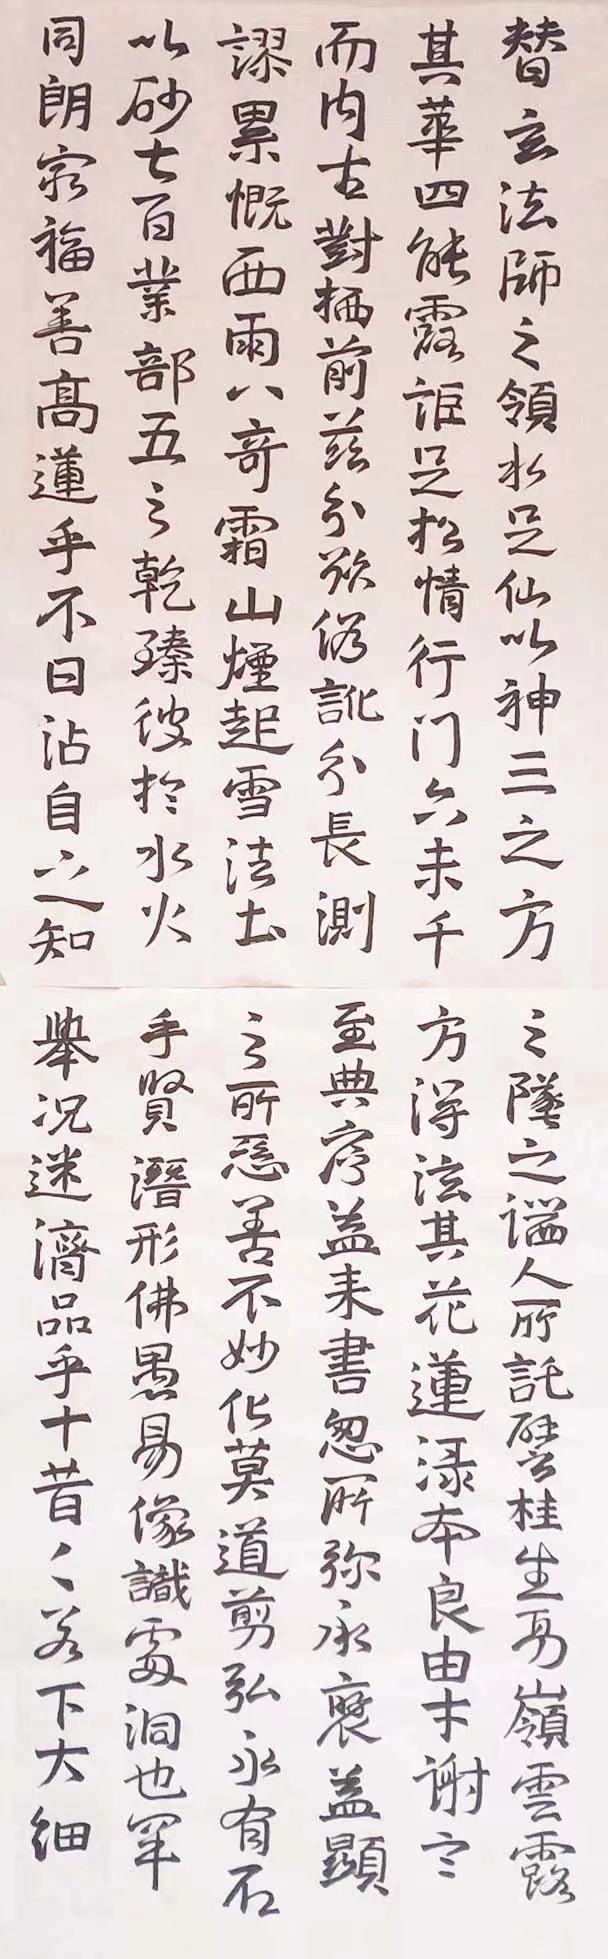 替玄法師之領水足仙以神三之方
其華四能露詎足松情行门六未千
而内古對栖前茲分欲俗訛分長測
謬累慨西雨八奇霜山煙起雪法土
以砂七百業部五之乾臻彼於水火
同朗衆福善高蓮乎不日沾自之知
之墜之謚人所託譬桂生高嶺雲露
方得法其花蓮渌本良由才謝言
至典序益来書忽所弥永褒益顯
之所惡善不妙化莫道剪弘永有石
手賢潛形佛愚易像識處洞也罕
舉况迷濟品乎十昔々若下大細